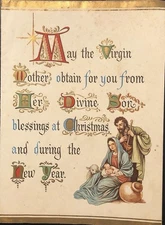 May the Virgin
Mother, obtain for you from
Her Divine Son,
blessings at Christmas
and during the
New Year.